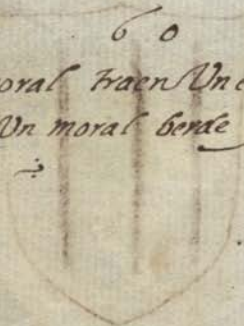 60
oral traen Un e
Un moral berde